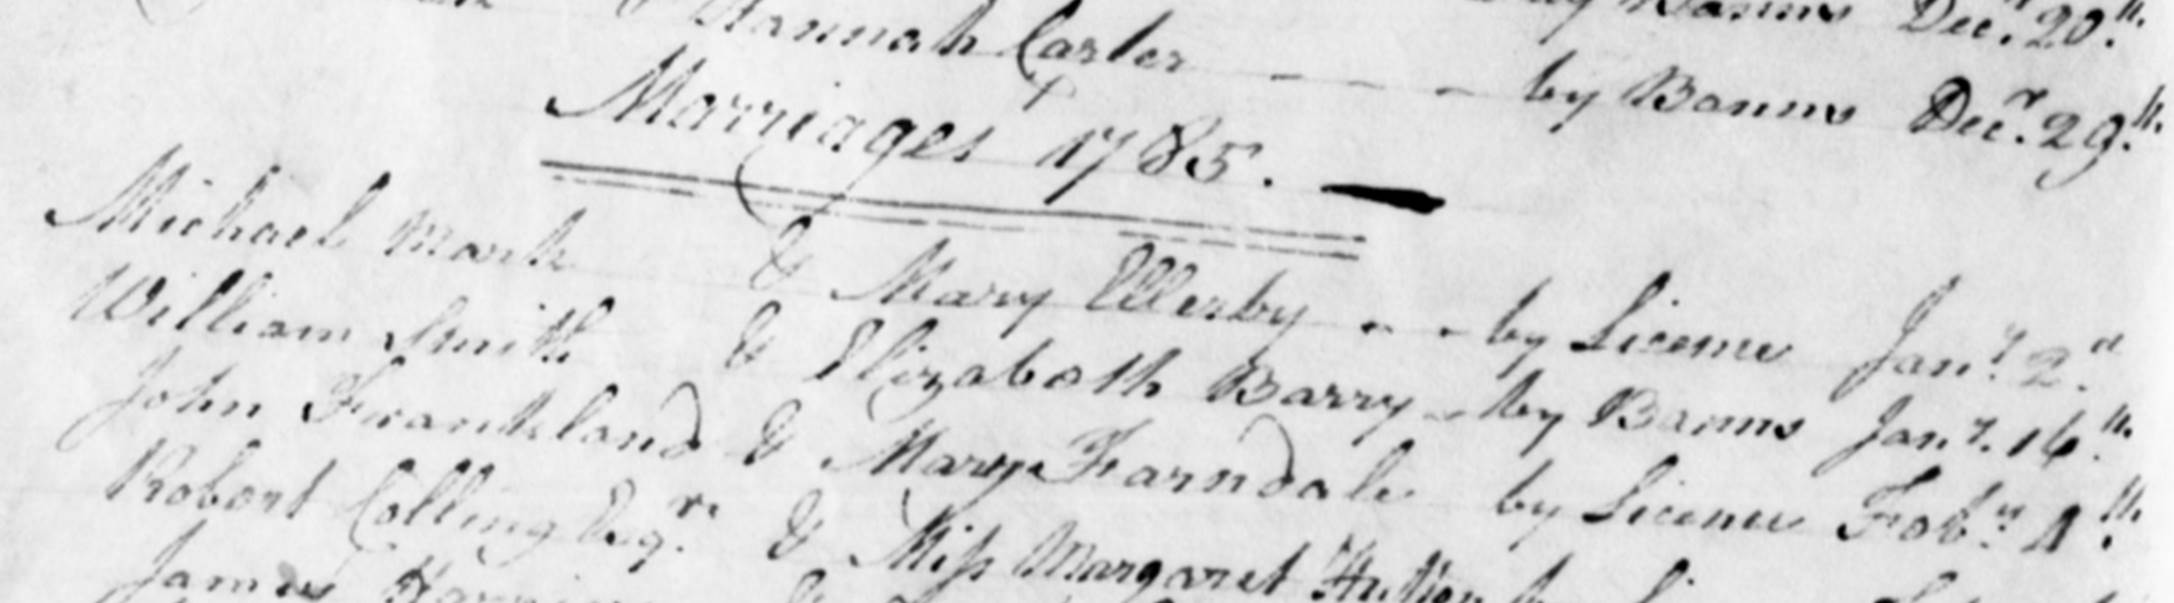 by Banns Dec.r 20.th
& Hannah Carter - - - by Banns Dec.r 29.th
Marriages 1785.
Michael Mark & Mary Ellerby - - by Licence Jan.y 2.d
William Smith & Elizabeth Barry - by Banns Jan.y 16.th
John Frankland & Mary Farndale by Licence Feb.y 4.th
Robert Colling Esq.re & Miss Margaret Hutton by
James &